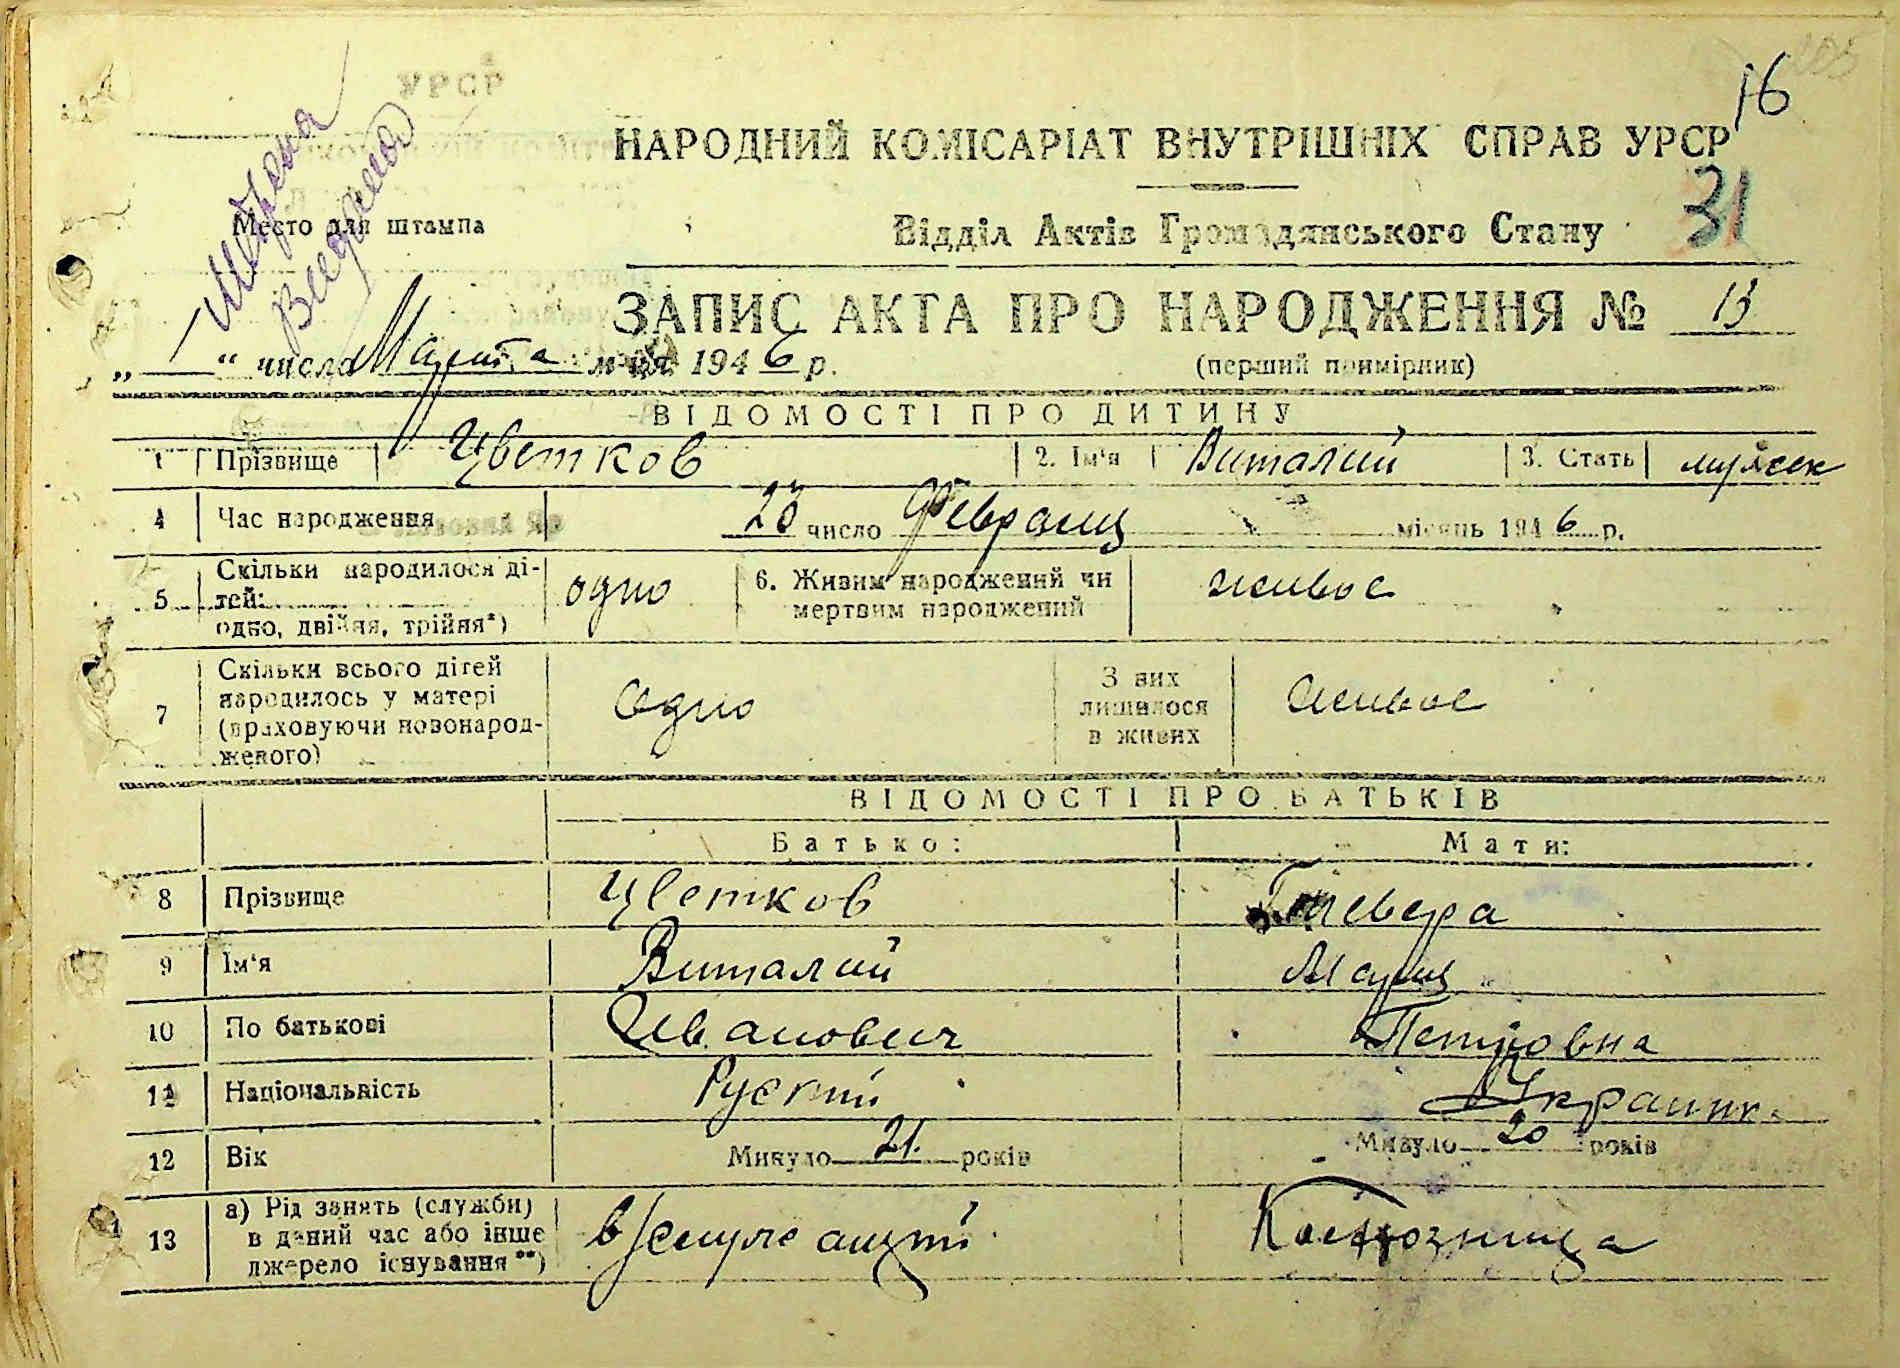 16
УРСР
НАРОДНИЙ КОМІСАРІАТ ВНУТРІШНІХ СПРАВ УРСР
31
Место для штампа
Відділ Актів Громадянського Стану
ЗАПИС АКТА ПРО НАРОДЖЕННЯ № 13
„ 1 “ числа Марта м-ця 1946 р.
(перший примірник)
ВІДОМОСТІ ПРО ДИТИНУ
1 Прізвище Цветков 2. Ім'я Виталий 3. Стать мужск
4 Час народження 23 число Февраля місяць 1946 р.
5 Скільки народилося ді-
тей:
одно, двійня, трійня*)
одно
6. Живим народжений чи
мертвим народжений
живое
7 Скільки всього дітей
народилось у матері
(враховуючи новонарод-
женого)
одно
З них
лишилося
в живих
живое
ВІДОМОСТІ ПРО БАТЬКІВ
Батько: Мати:
8 Прізвище Цветков
9 Ім'я Виталий Мария
10 По батькові Иванович Петровна
11 Національність Руский Украинк.
12 Вік Минуло 21. років Минуло 20 років
13 а) Рід занять (служби)
в даний час або інше
джерело існування **)
Колхозница